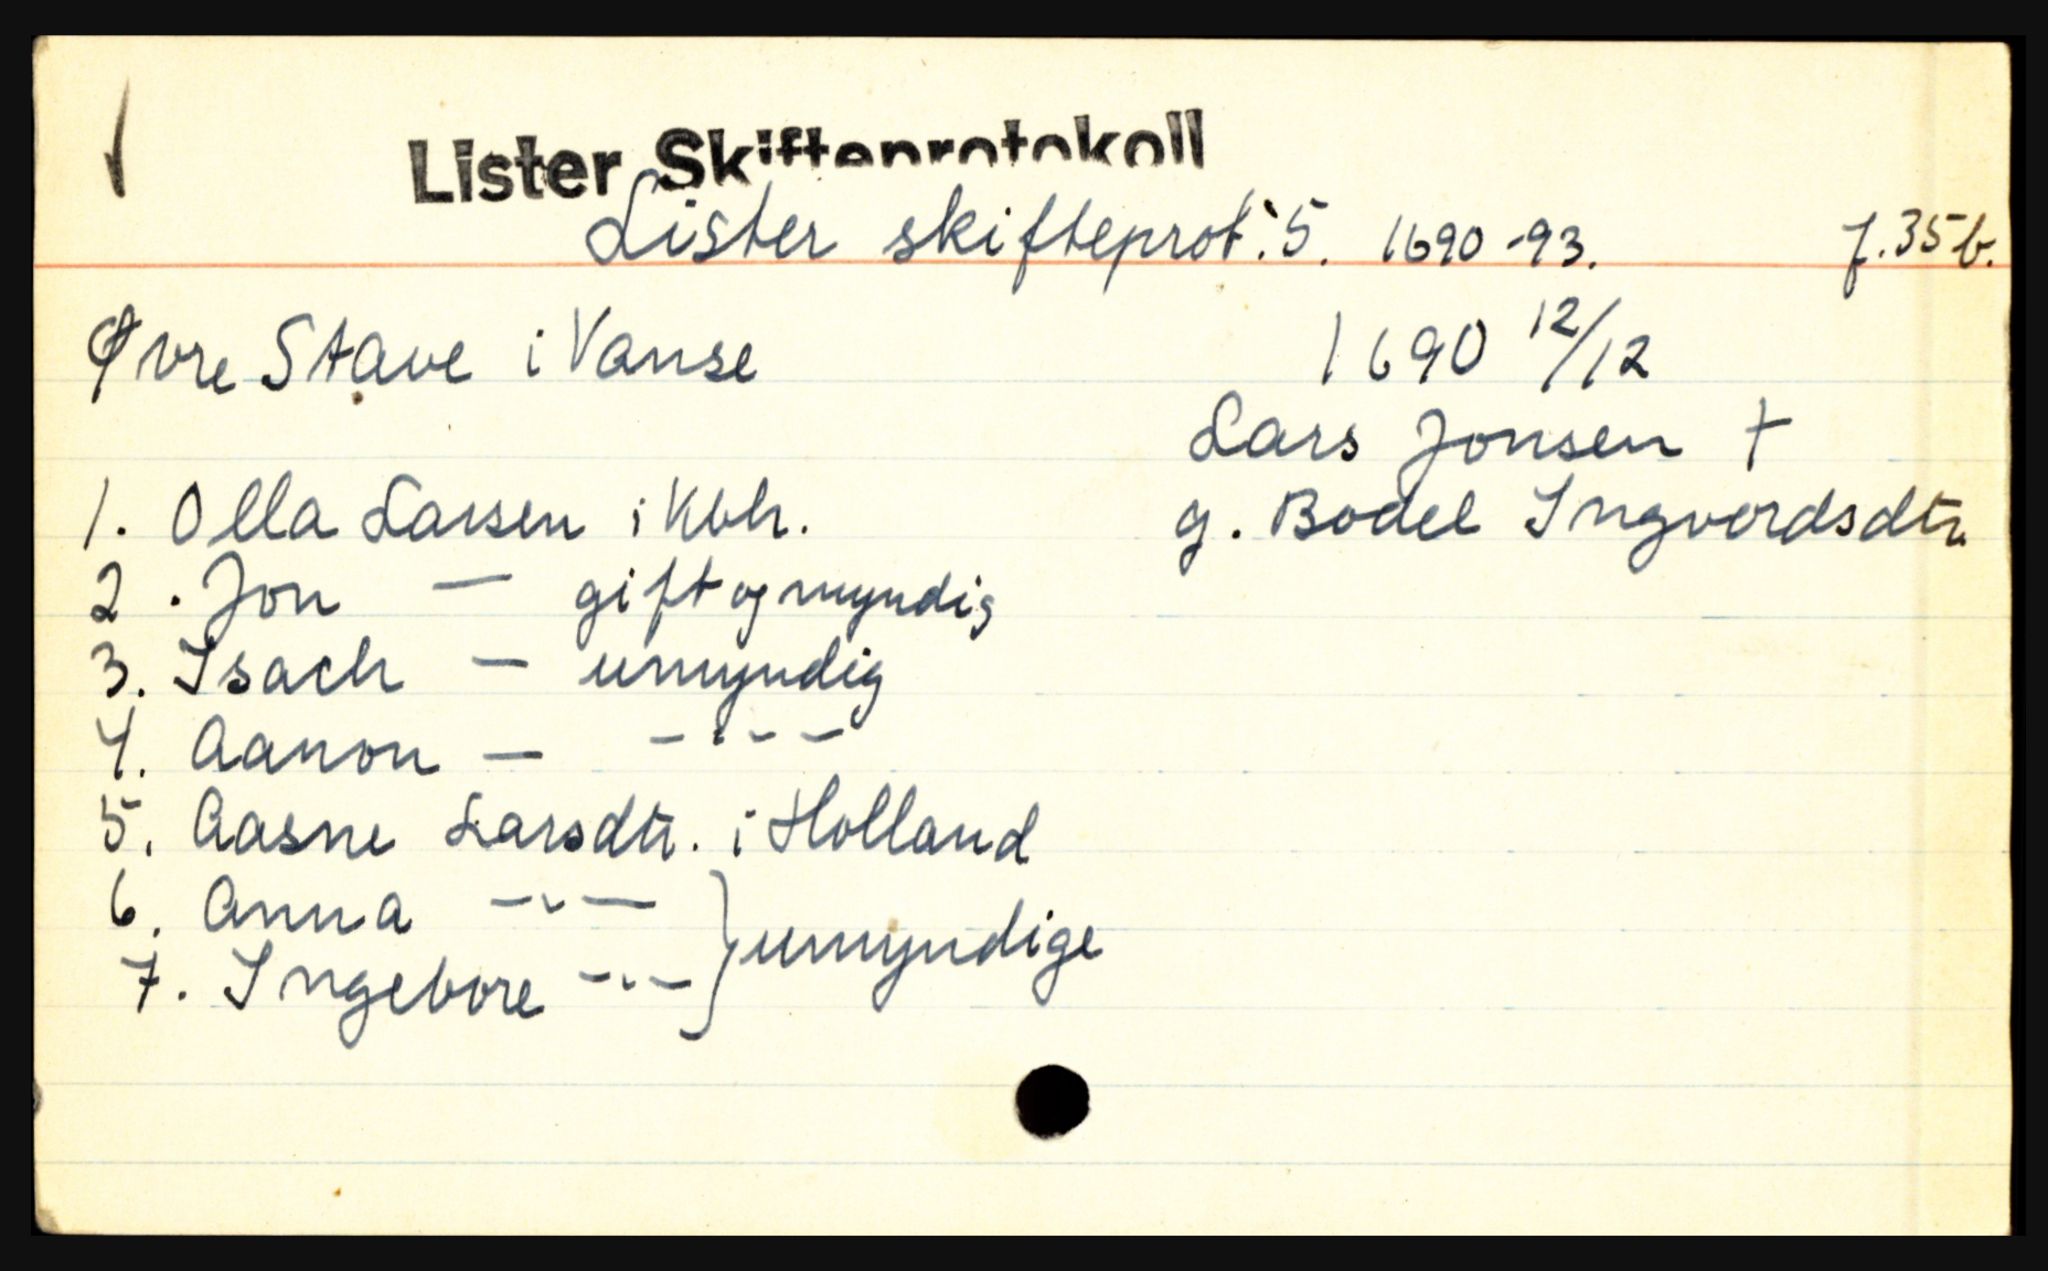 Lister Skifteprotokoll
Lister skifteprot. 5. 1690-93. f. 35b.
Øvre Stave i Vanse 1690 12/12
Lars Jonsen †
g. Bodel Ingvordsdtr.
1. Olla Larsen i Kbh.
2. Jon — gift og myndig
3. Isach — umyndig
4. Aanon — - " - -
5. Aasne Larsdtr. i Holland
6. Anna - " -
7. Ingebore - " - } umyndige